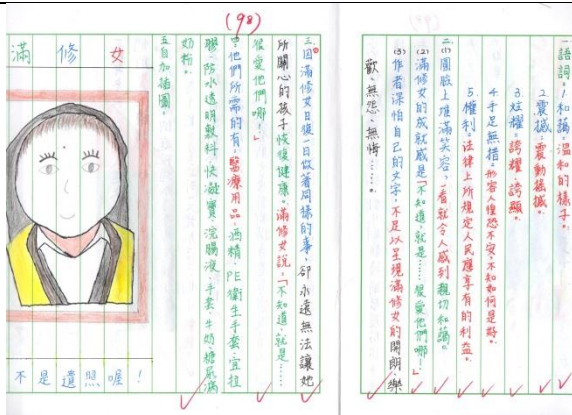 一語詞：1.和藹：溫和的樣子。
2.震撼：震動搖撼。
3.炫耀：誇耀、誇顯。
4.手足無措：形容人惶恐不安，不知如何是好。
5.權利：法律上所規定人民應享有的利益。
二、(1)圓臉上堆滿笑容，一看就令人感到親切和藹。
(2)滿修女的成就感是「不知道，就是……很愛他們哪！」
(3)作者深怕自己的文字，不足以呈現滿修女的開朗、樂
歡、無怨、無悔……。
(98)
三、因滿修女日復一日做著同樣的事，卻永遠無法讓她
所關心的孩子恢復健康。滿修女說：「不知道，就是……
很愛他們哪！」
他們所需的有：醫療用品、酒精、PE衛生手套、宜拉
膠、防水透明敷料、快澈寶、浣腸液、手套、牛奶、糖尿病
奶粉。
五、自加插圖。
滿修女
不是遺照喔！